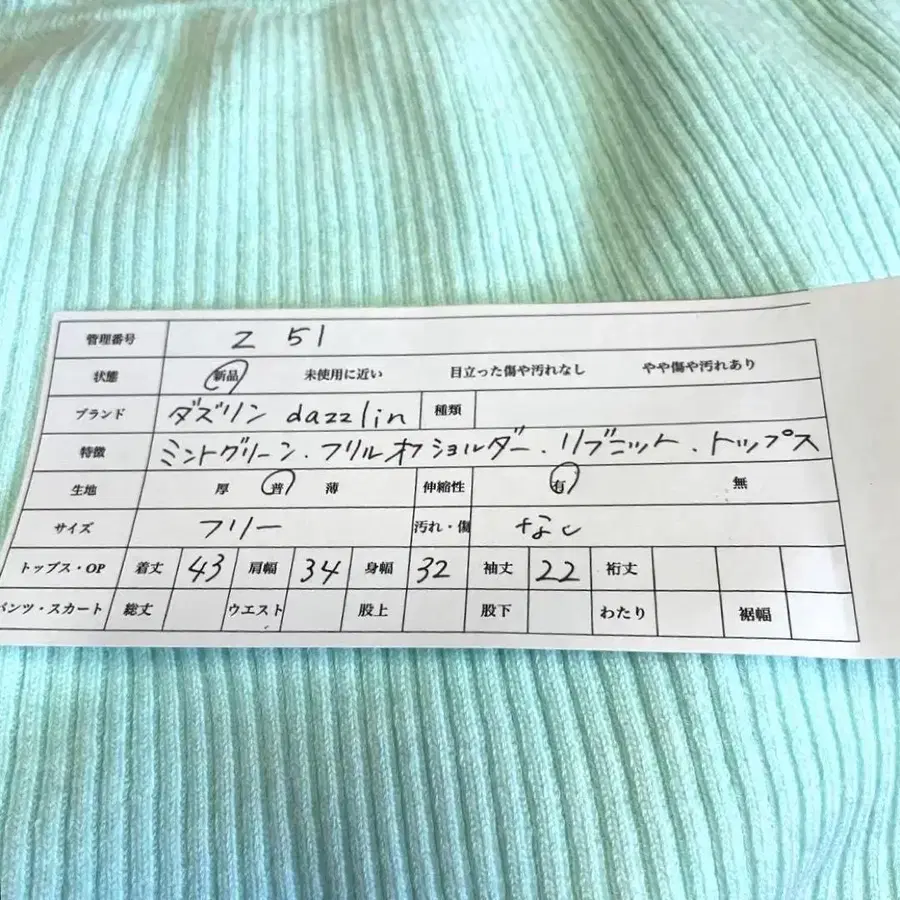 管理番号 Z 51
状態 新品 未使用に近い 目立った傷や汚れなし やや傷や汚れあり
ブランド ダズリン dazzlin 種類
特徴 ミントグリーン・フリルオフショルダー・リブニット・トップス
生地 厚 普 薄 伸縮性 有 無
サイズ フリー 汚れ・傷 なし
トップス・OP 着丈 43 肩幅 34 身幅 32 袖丈 22 裄丈
パンツ・スカート 総丈 ウエスト 股上 股下 わたり 裾幅